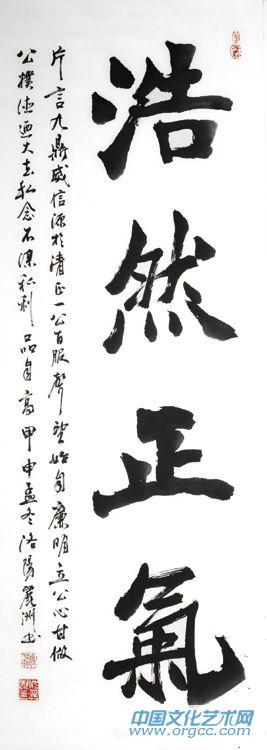 浩然正氣
片言九鼎威信源於清正一公百服聲望始自廉明立公心甘做
公撲德迺大去私念不謀私利品自高甲申孟冬洛陽麗洲书
中国文化艺术网
www.orgcc.com